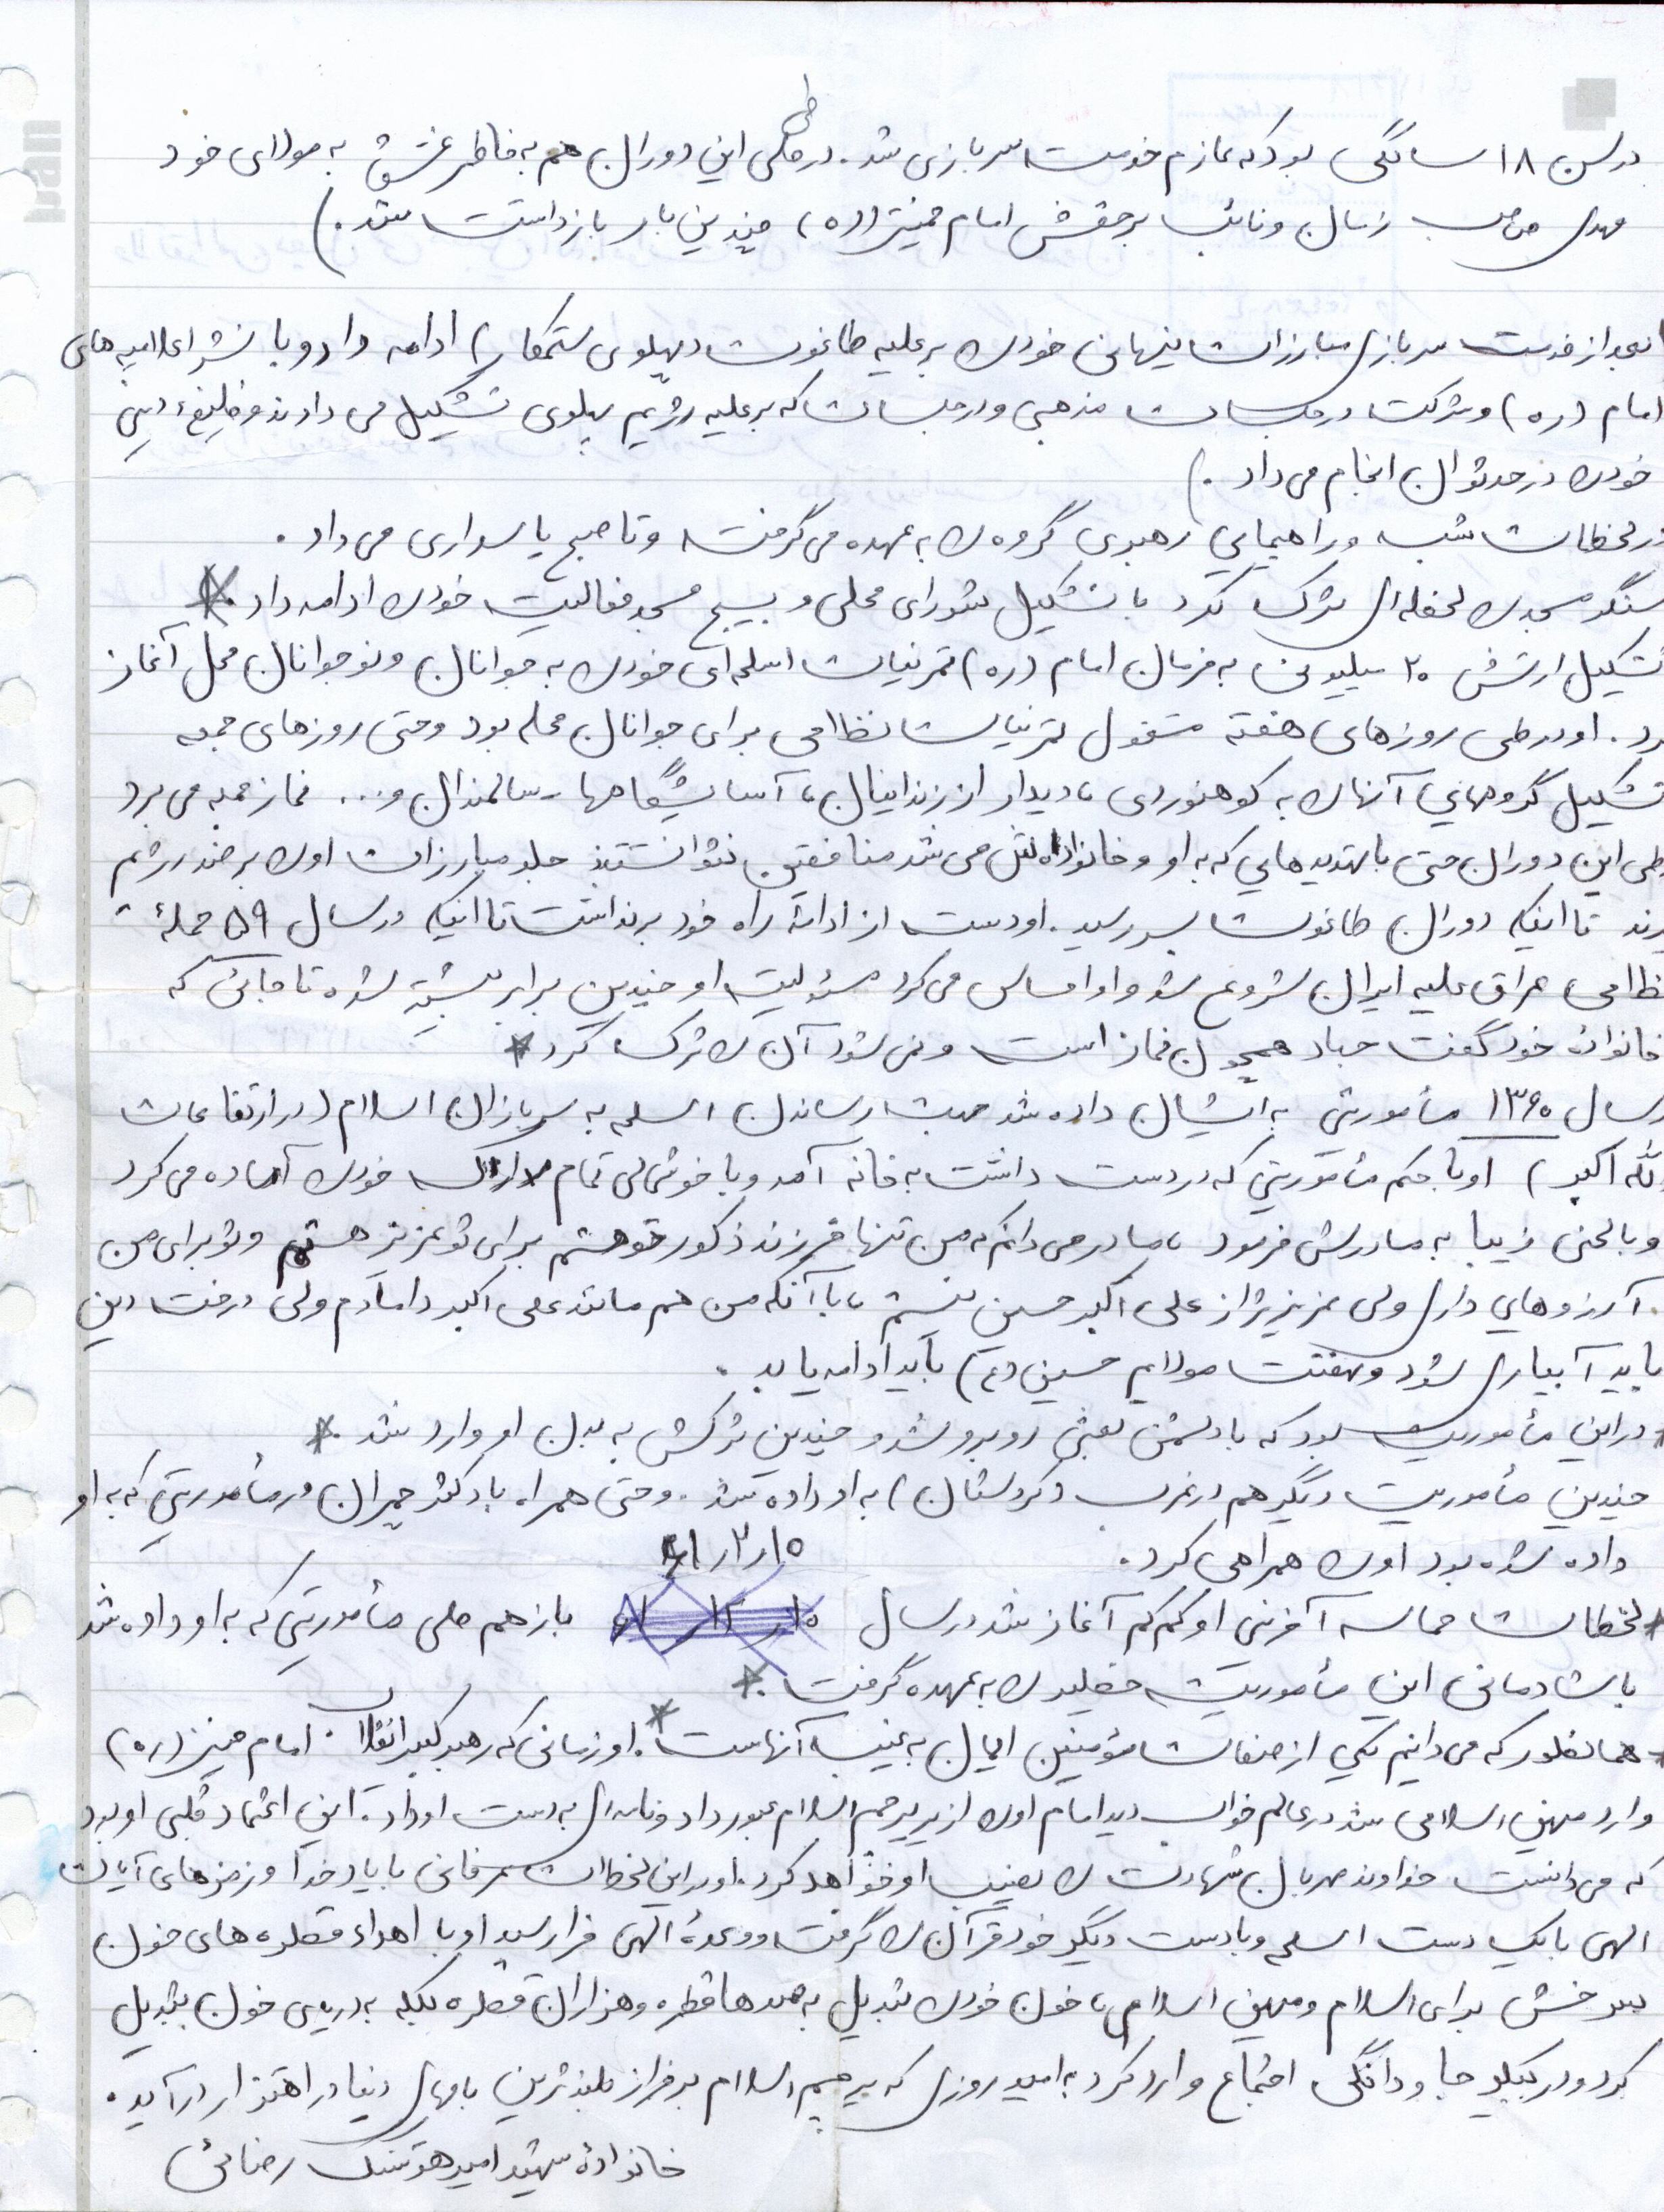 درسن ۱۸ سالگی بود که عازم خدمت سربازی شد. در طی این دوران هم به خاطر عشق به مولای خود
مهدی صاحب زمان و نائب برحقش امام خمینی (ره) چندین بار بازداشت شد.)
بعد از خدمت سربازی مبارزات پنهانی خود را بر علیه طاغوت (پهلوی ستمکار) ادامه داد و با نشر اعلامیه های
امام (ره) و شرکت در جلسات مذهبی و در جلسات که بر علیه رژیم پهلوی تشکیل می دادند وظیفۀ دینی
خود را در حد توان انجام می داد.)
در لحظات شب و راهپیمایی رهبری گروه را به عهده می گرفت و تا صبح پاسداری می داد.
سنگر مسجد را لحظه ای ترک نکرد با تشکیل شورای محلی و بسیج مسجد فعالیت خود را ادامه داد *
تشکیل ارتش ۲۰ میلیونی به فرمان امام (ره) تمرینات اسلحه ای خود را به جوانان و نوجوانان محل آغاز
کرد. او در طی روزهای هفته مشغول تمرینات نظامی برای جوانان محله بود و حتی روزهای جمعه
تشکیل گروههایی آنها را به کوهنوردی، دیدار از زندانیان، آسایشگاهها - سالمندان و... نماز جمعه می برد
طی این دوران حتی با تهدیدهایی که به او و خانواده اش می شد منافقین نتوانستند جلو مبارزات او را بر ضد رژیم
گیرند تا اینکه دوران طاغوت بسر رسید. او دست از ادامۀ راه خود برنداشت تا اینکه در سال ۵۹ حملۀ
نظامی عراق علیه ایران شروع شد و او احساس می کرد مسئولیت او چندین برابر بیشتر شده تا جائی که
خانوادۀ خود گفت جهاد همچون نماز است و نمی شود آن را ترک کرد *
در سال ۱۳۶۰ مأموریتی به ایشان داده شد جهت رساندن اسلحه به سربازان اسلام (در ارتفاعات
الله اکبر) او با حکم مأموریتی که در دست داشت به خانه آمد و با خوشحالی تمام مدارک خود را آماده می کرد
و با لحنی زیبا به مادرش فرمود، مادر می دانم که من تنها فرزند ذکور تو هستم برای تو عزیز هستم و تو برای من
آرزوهایی داری ولی عزیزتر از علی اکبر حسین نیستم، با آنکه من هم مانند علی اکبر دامادم ولی درخت دین
باید آبیاری شود و نهضت مولایم حسین (ع) باید ادامه یابد.
* در این مأموریت بود که با دشمن بعثی روبرو شد و چندین ترکش به بدن او وارد شد. *
چندین مأموریت دیگر هم در غرب (کردستان) به او داده شد. و حتی همراه با دکتر چمران در مأموریتی که به او
داده شده بود او را همراهی کرد.
* لحظات حماسه آفرینی او کم کم آغاز شد در سال ۶۱/۲/۱۵ باز هم طی مأموریتی که به او داده شد
با شادمانی این مأموریت خطیر را به عهده گرفت. *
* همانطور که می دانیم یکی از صفات مؤمنین ایمان به غیب آنهاست *. او زمانی که رهبر کبیر انقلاب. امام خمینی (ره)
وارد میهن اسلامی شد در عالم خواب دید امام او را از زیر پرچم اسلام عبور داد و نامه ای به دست او داد. این اعتماد قلبی او بود
که می دانست خداوند مهربان شهادت را نصیب او خواهد کرد. او در این لحظات عرفانی با یاد خدا و زمزمه های آیات
الهی با یک دست اسلحه و با دست دیگر خود قرآن را گرفت و وعدۀ الهی فرا رسید او با اهداء قطره های خون
سرخش برای اسلام و میهن اسلامی، خون خود را تبدیل به صدها قطره و هزاران قطره بلکه به دریای خون تبدیل
کرد و در پیکر جاودانگی اجتماع وارد کرد به امید روزی که پرچم اسلام بر فراز بلندترین بامهای دنیا در اهتزاز درآید.
خانوادۀ شهید امیر هوشنگ رضائی